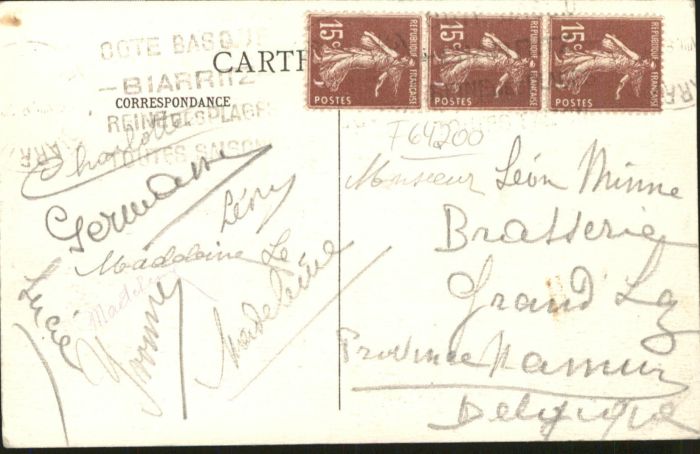 COTE BASQUE
BIARRITZ
REINE DES PLAGES
TOUTES SAISONS
CARTE
CORRESPONDANCE
15c REPUBLIQUE FRANÇAISE POSTES
15c REPUBLIQUE FRANÇAISE POSTES
15c REPUBLIQUE FRANÇAISE POSTES
F64200
Charlotte
Germaine
Lény
Madeleine Le
Madeleine
Lucie
Yvonne
Madeleine
Monsieur Léon Minne
Brasserie
Grand Lez
Province Namur
Belgique